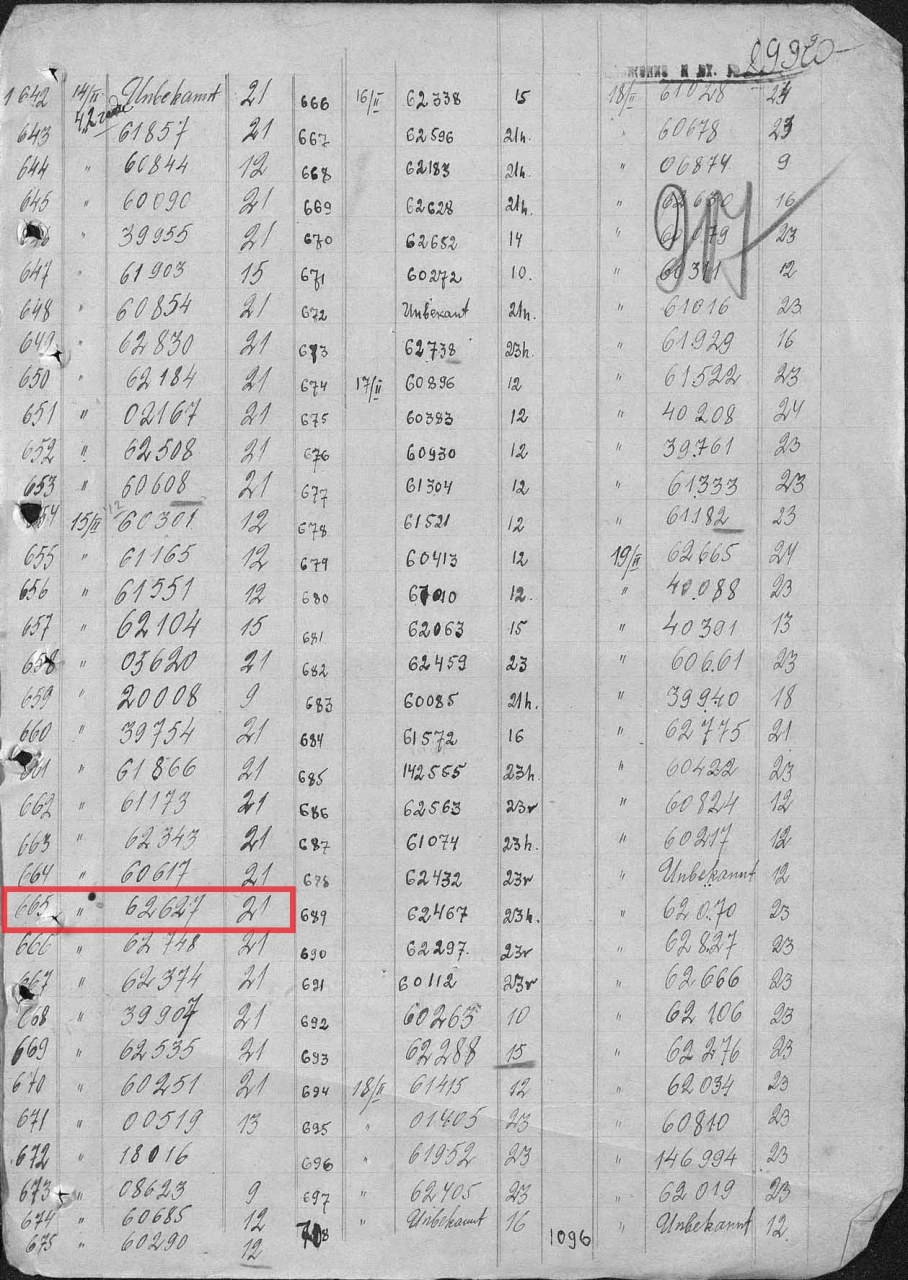 89920
жение и вх. №
1642 14/II Unbekannt 21 666 16/II 62338 15 18/II 61028 24
42 года
643 61857 21 667 62596 21h. " 60678 23
644 " 60844 12 668 62183 21h. " 06874 9
645 " 60090 21 669 62628 21h. " 16
" 39955 21 670 62652 14 " 23
647 " 61903 15 671 60272 10. " 12
648 " 60854 21 672 Unbekant 21h. " 61016 23
649 " 62830 21 673 62738 23h. " 61929 16
650 " 62184 21 674 17/II 60896 12 " 61522 23
651 " 02167 21 675 60383 12 " 40208 24
652 " 62508 21 676 60930 12 " 39761 23
653 " 60608 21 677 61304 12 " 61333 23
654 15/II 60301 12 678 61521 12 " 61182 23
655 " 61165 12 679 60413 12 19/II 62665 24
656 " 61551 12 680 12. " 40088 23
657 " 62104 15 681 62063 15 " 40391 13
658 " 03620 21 682 62459 23 " 60661 23
659 " 20008 9 683 60085 21h. " 39940 18
660 " 39754 21 684 61572 16 " 62775 21
661 " 61866 21 685 142555 23h. " 60422 23
662 " 61173 21 686 62563 23r " 60824 12
663 " 62343 21 687 61074 23h. " 60217 12
664 " 60617 21 62432 23r " Unbekannt 12
665 " 62627 21 689 62467 23h. " 62070 23
666 " 62748 21 690 62297. 23r " 62827 23
667 " 62374 21 691 60112 23r " 62666 23
668 " 39907 21 692 60263 10 " 62106 23
669 " 62535 21 693 62288 15 " 62276 23
670 " 60251 21 694 18/II 61415 12 " 62034 23
671 " 00519 13 695 " 01405 23 " 60810 23
672 " 18016 696 " 61952 23 " 146994 23
673 " 08623 9 697 " 62405 23 " 62019 23
674 " 60685 12 " Unbekannt 16 1096 " Unbekannt 12.
675 " 60290 12